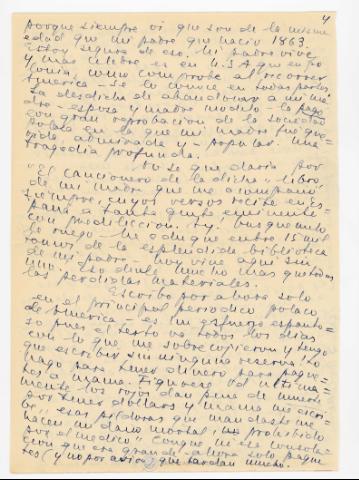 4
porque siempre oí que son de la misma
edad que mi padre que nació 1863.
Estoy segura de eso. Mi padre vive
y más celebre es en U.S.A que en Eu
como comprobé al recorrer
America - se lo conoce en todas partes.
La desdicha de abandonar a mi ma
dre - esposa y madre modelo - la pagó
con gran reprobación de la sociedad
polaca en la que mi madre fué que
rida admirada y popular. Una
tragedia profunda.
No se que daria por
"El cancionero de la dicha", libro
de mi madre que me acompañó
siempre, cuyos versos recité en Es
paña a tanta gente eminente
con predilección. Ay, busquemelo
le ruego - me ahogué entre 15 mil
tomos de la esplendida biblioteca
de mi padre - hoy vivo aquí sin
uno. Eso duele mucho más que todas
las perdidas materiales.
Escribo por ahora solo
en el principal periodico polaco
de America - es mi esfuerzo espanto
so pues el resto va todos los días
con lo que me sobrecogieron y tengo
que escribir sin ninguna reserva! Lo
hago para tener dinero para paque
tes a mama. Figurese Vd ultima
mente los rojos dan pena de muerte
por tener dolares y mama me escri
be "esas píldoras que mandaste me
hacen un daño mortal, has prohibido
por el medico" Conque ni ese consola
ción que era grande - ahora solo paque
tes (y no por avión) que tardan mucho.